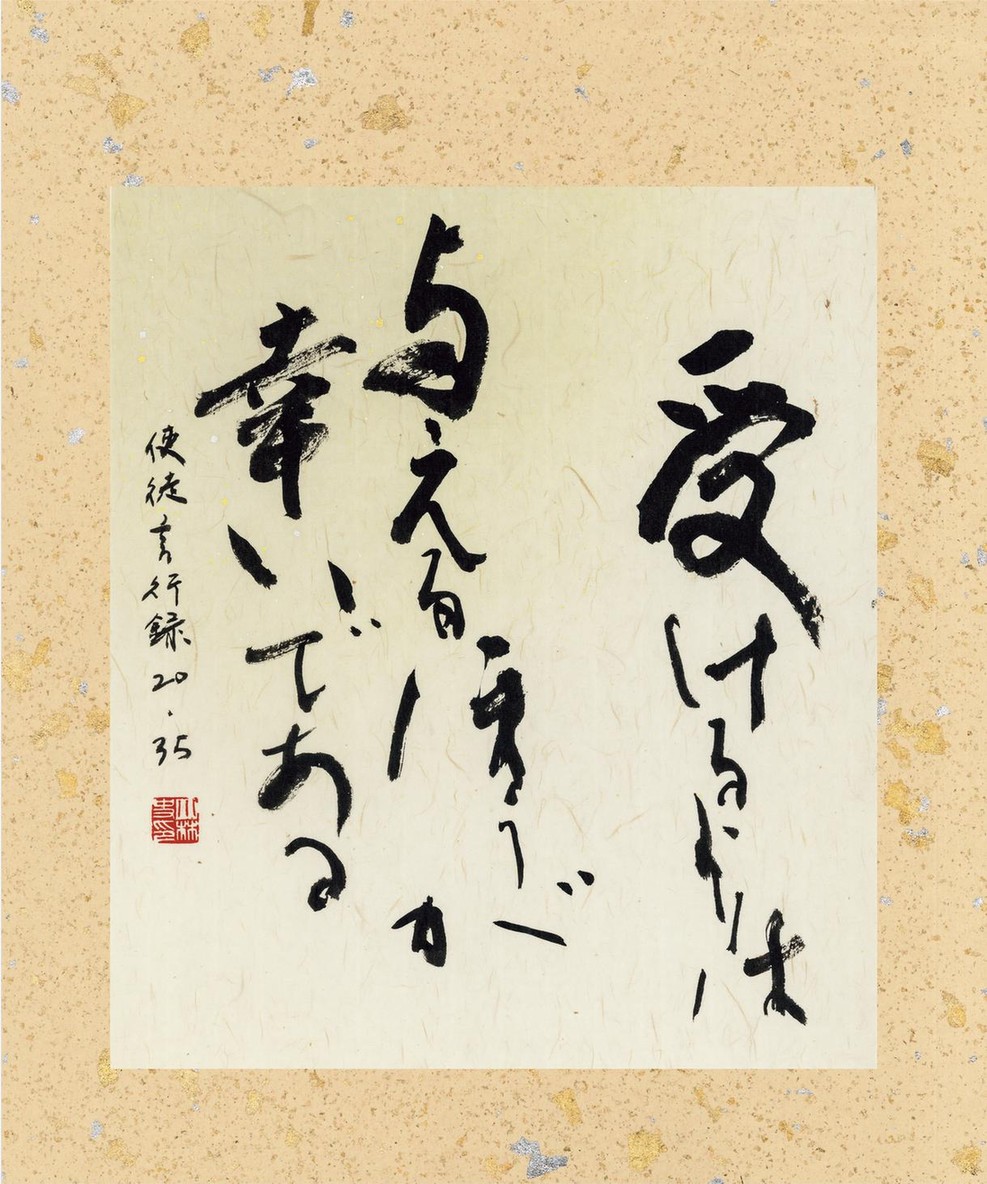 受けるよりは
与えるほうが
幸いである
使徒言行録20・35